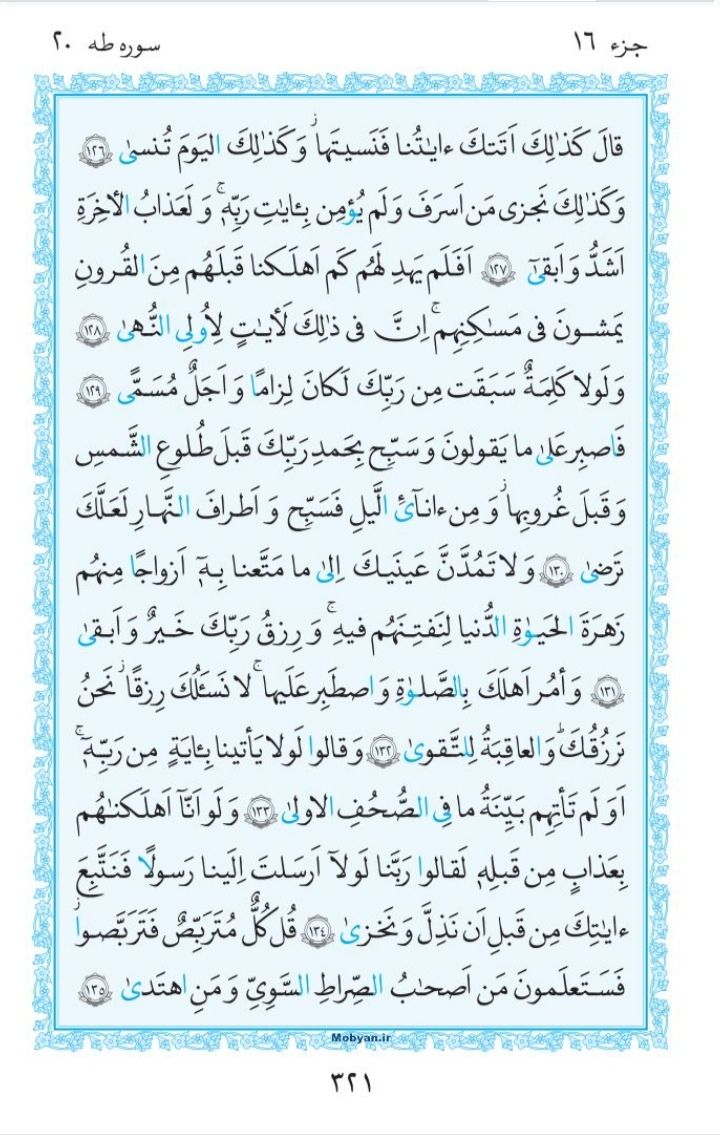 جزء ١٦
سوره طه ٢٠
قالَ كَذٰلِكَ اَتَتكَ ءايٰتُنا فَنَسيتَها ۖ وَ كَذٰلِكَ اليَومَ تُنسىٰ ﴿١٢٦﴾
وَ كَذٰلِكَ نَجزى مَن اَسرَفَ وَ لَم يُؤمِن بِـٔايٰتِ رَبِّهٖ ۚ وَ لَعَذابُ الأخِرَةِ
اَشَدُّ وَ اَبقىٰٓ ﴿١٢٧﴾ اَفَلَم يَهدِ لَهُم كَم اَهلَكنا قَبلَهُم مِنَ القُرونِ
يَمشونَ فى مَسٰكِنِهِم ۚ اِنَّ فى ذٰلِكَ لَأيٰتٍ لِاُولِى النُّهىٰ ﴿١٢٨﴾
وَ لَولا كَلِمَةٌ سَبَقَت مِن رَبِّكَ لَكانَ لِزامًا وَ اَجَلٌ مُسَمًّى ﴿١٢٩﴾
فَاصبِر عَلىٰ ما يَقولونَ وَ سَبِّح بِحَمدِ رَبِّكَ قَبلَ طُلوعِ الشَّمسِ
وَ قَبلَ غُروبِها ۖ وَ مِن ءانآئِ الَّيلِ فَسَبِّح وَ اَطرافَ النَّهارِ لَعَلَّكَ
تَرضىٰ ﴿١٣٠﴾ وَ لا تَمُدَّنَّ عَينَيكَ اِلىٰ ما مَتَّعنا بِهٖٓ اَزواجًا مِنهُم
زَهرَةَ الحَيوٰةِ الدُّنيا لِنَفتِنَهُم فيهِ ۚ وَ رِزقُ رَبِّكَ خَيرٌ وَ اَبقىٰ
﴿١٣١﴾ وَ أمُر اَهلَكَ بِالصَّلوٰةِ وَ اصطَبِر عَلَيها ۖ لا نَسـَٔلُكَ رِزقًا ۖ نَحنُ
نَرزُقُكَ ۗ وَ العاقِبَةُ لِلتَّقوىٰ ﴿١٣٢﴾ وَ قالوا لَولا يَأتينا بِـٔايَةٍ مِن رَبِّهٖٓ ۚ
اَوَ لَم تَأتِهِم بَيِّنَةُ ما فِى الصُّحُفِ الاولىٰ ﴿١٣٣﴾ وَ لَو اَنّآ اَهلَكنٰهُم
بِعَذابٍ مِن قَبلِهٖ لَقالوا رَبَّنا لَولآ اَرسَلتَ اِلَينا رَسولًا فَنَتَّبِعَ
ءايٰتِكَ مِن قَبلِ اَن نَذِلَّ وَ نَخزىٰ ﴿١٣٤﴾ قُل كُلٌّ مُتَرَبِّصٌ فَتَرَبَّصوا ۖ
فَسَتَعلَمونَ مَن اَصحٰبُ الصِّراطِ السَّوِىِّ وَ مَنِ اهتَدىٰ ﴿١٣٥﴾
Mobyan.ir
٣٢١